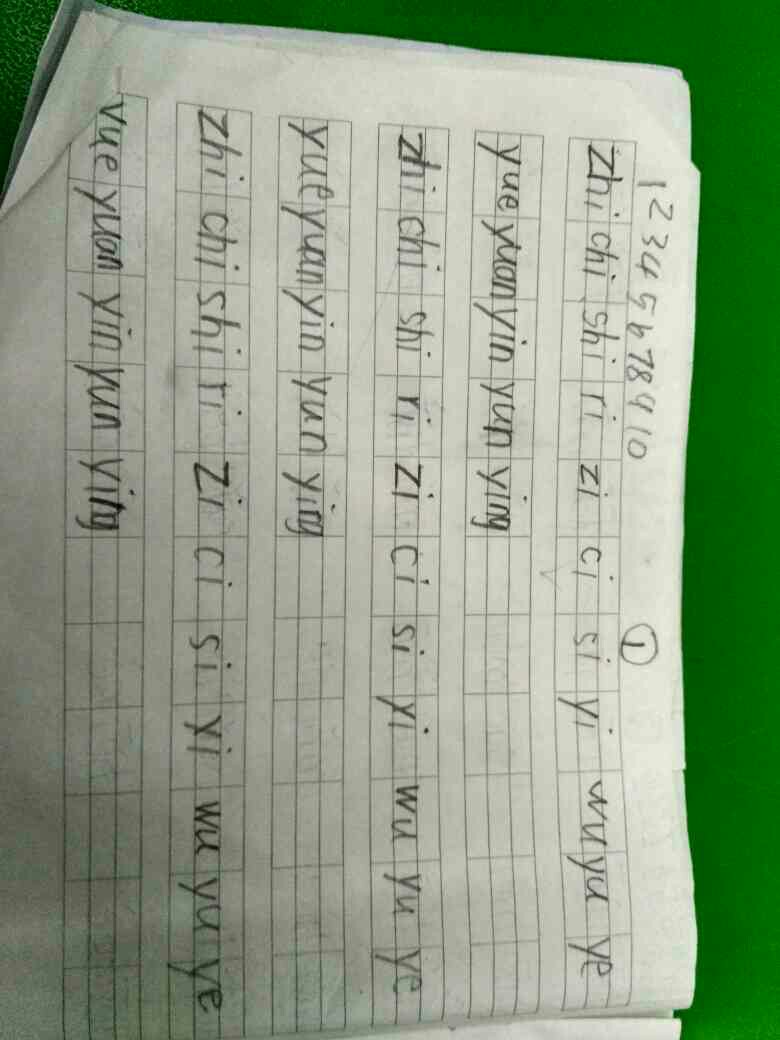 1 2 3 4 5 6 7 8 9 10
①
zhi chi shi ri zi ci si yi wu yu ye
yue yuan yin yun ying
zhi chi shi ri zi ci si yi wu yu ye
yue yuan yin yun ying
zhi chi shi ri zi ci si yi wu yu ye
yue yuan yin yun ying